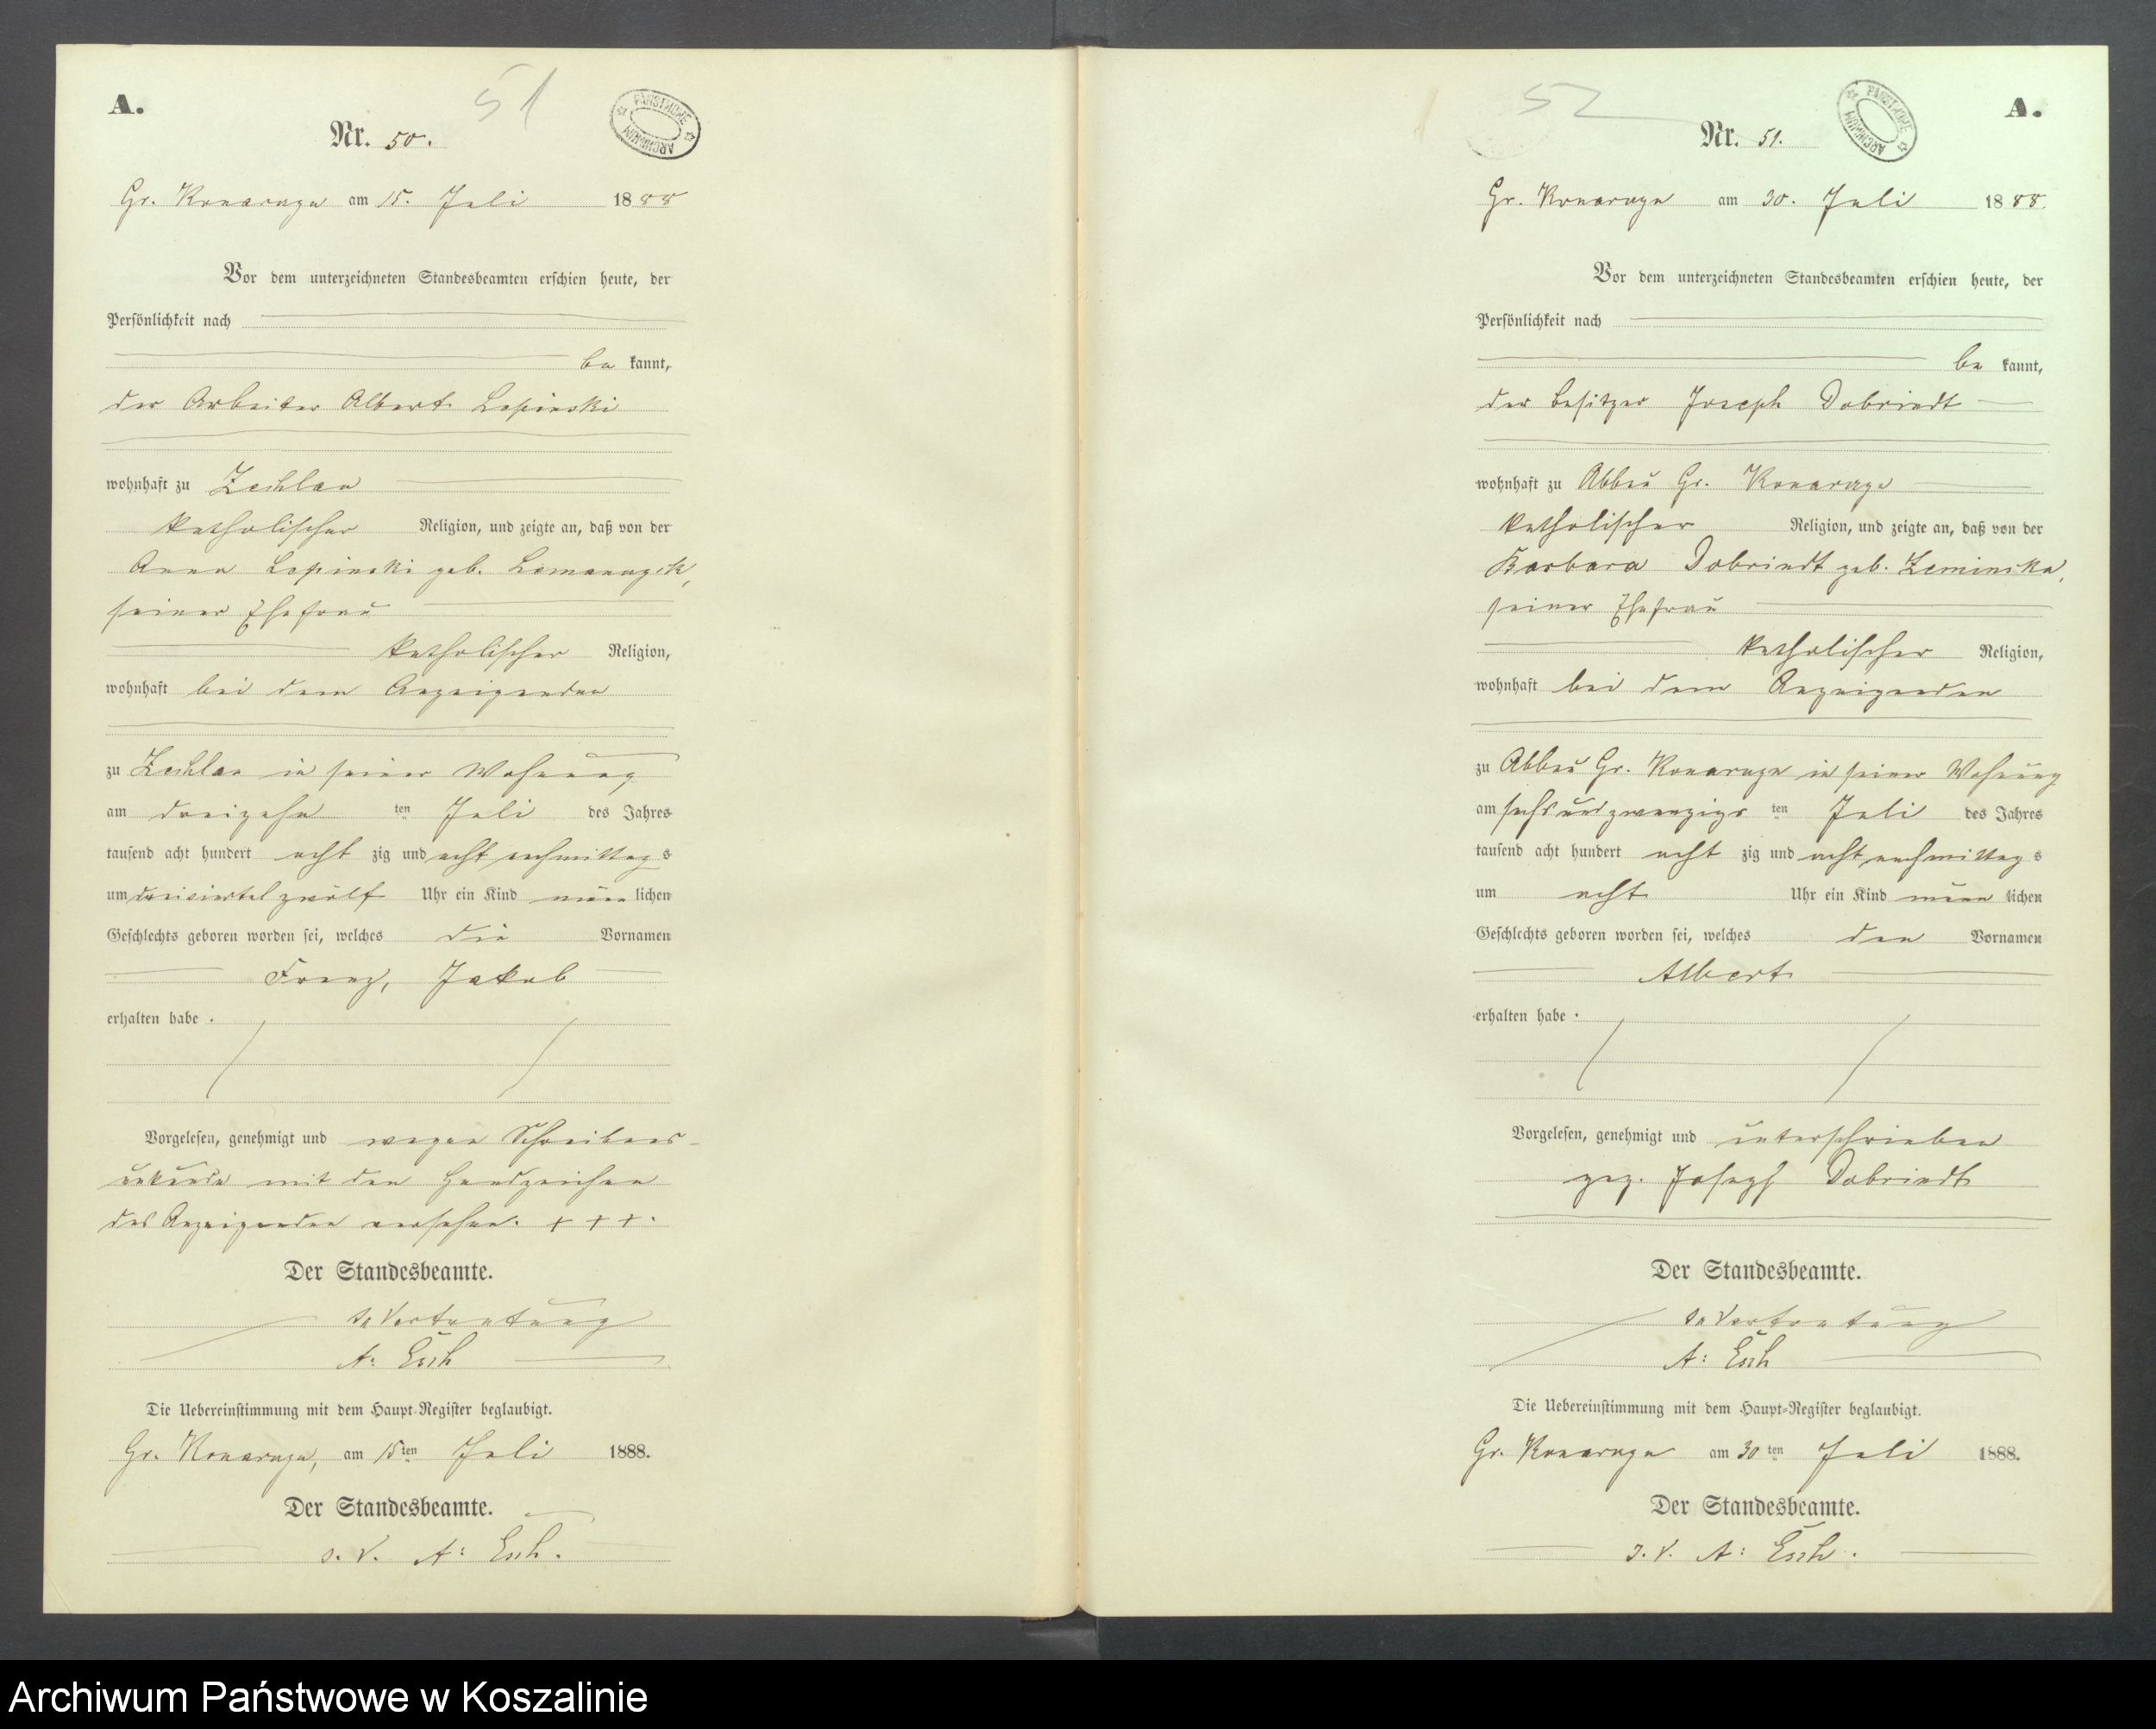 A.
51
PAŃSTWOWE
ARCHIWUM
Nr. 50.
Gr. Konarzyn am 15. Juli 1888
Vor dem unterzeichneten Standesbeamten erschien heute, der
Persönlichkeit nach
be kannt,
der Arbeiter Albert Lepinski
wohnhaft zu Zechlau
katholischer Religion, und zeigte an, daß von der
Anna Lepinski geb.
seiner Ehefrau
katholischer Religion,
wohnhaft bei dem Anzeigenden
zu Zechlau in seiner Wohnung
am dreizehn ten Juli des Jahres
tausend acht hundert acht zig und acht nachmittag s
um dreiviertel zwölf Uhr ein Kind männ lichen
Geschlechts geboren worden sei, welches die Vornamen
Franz, Jakob
erhalten habe.
Vorgelesen, genehmigt und wegen Schreibens-
unkunde mit den Handzeichen
des Anzeigenden versehen. + + +.
Der Standesbeamte.
In Vertretung
A: Esch
Die Uebereinstimmung mit dem Haupt-Register beglaubigt.
Gr. Konarzyn, am 15ten Juli 1888.
Der Standesbeamte.
I. V. A: Esch.
52
PAŃSTWOWE
ARCHIWUM
A.
Nr. 51.
Gr. Konarzyn am 30. Juli 1888.
Vor dem unterzeichneten Standesbeamten erschien heute, der
Persönlichkeit nach
be kannt,
der Besitzer Joseph Dobrindt
wohnhaft zu Abbau Gr. Konarzyn
katholischer Religion, und zeigte an, daß von der
Barbara Dobrindt geb. Zeminska,
seiner Ehefrau
katholischer Religion,
wohnhaft bei dem Anzeigenden
zu Abbau Gr. Konarzyn in seiner Wohnung
am sechsundzwanzigs ten Juli des Jahres
tausend acht hundert acht zig und acht nachmittag s
um acht Uhr ein Kind männ lichen
Geschlechts geboren worden sei, welches den Vornamen
Albert
erhalten habe.
Vorgelesen, genehmigt und unterschrieben
gez. Joseph Dobrindt
Der Standesbeamte.
In Vertretung
A: Esch
Die Uebereinstimmung mit dem Haupt-Register beglaubigt.
Gr. Konarzyn am 30 ten Juli 1888.
Der Standesbeamte.
I. V. A: Esch.
Archiwum Państwowe w Koszalinie